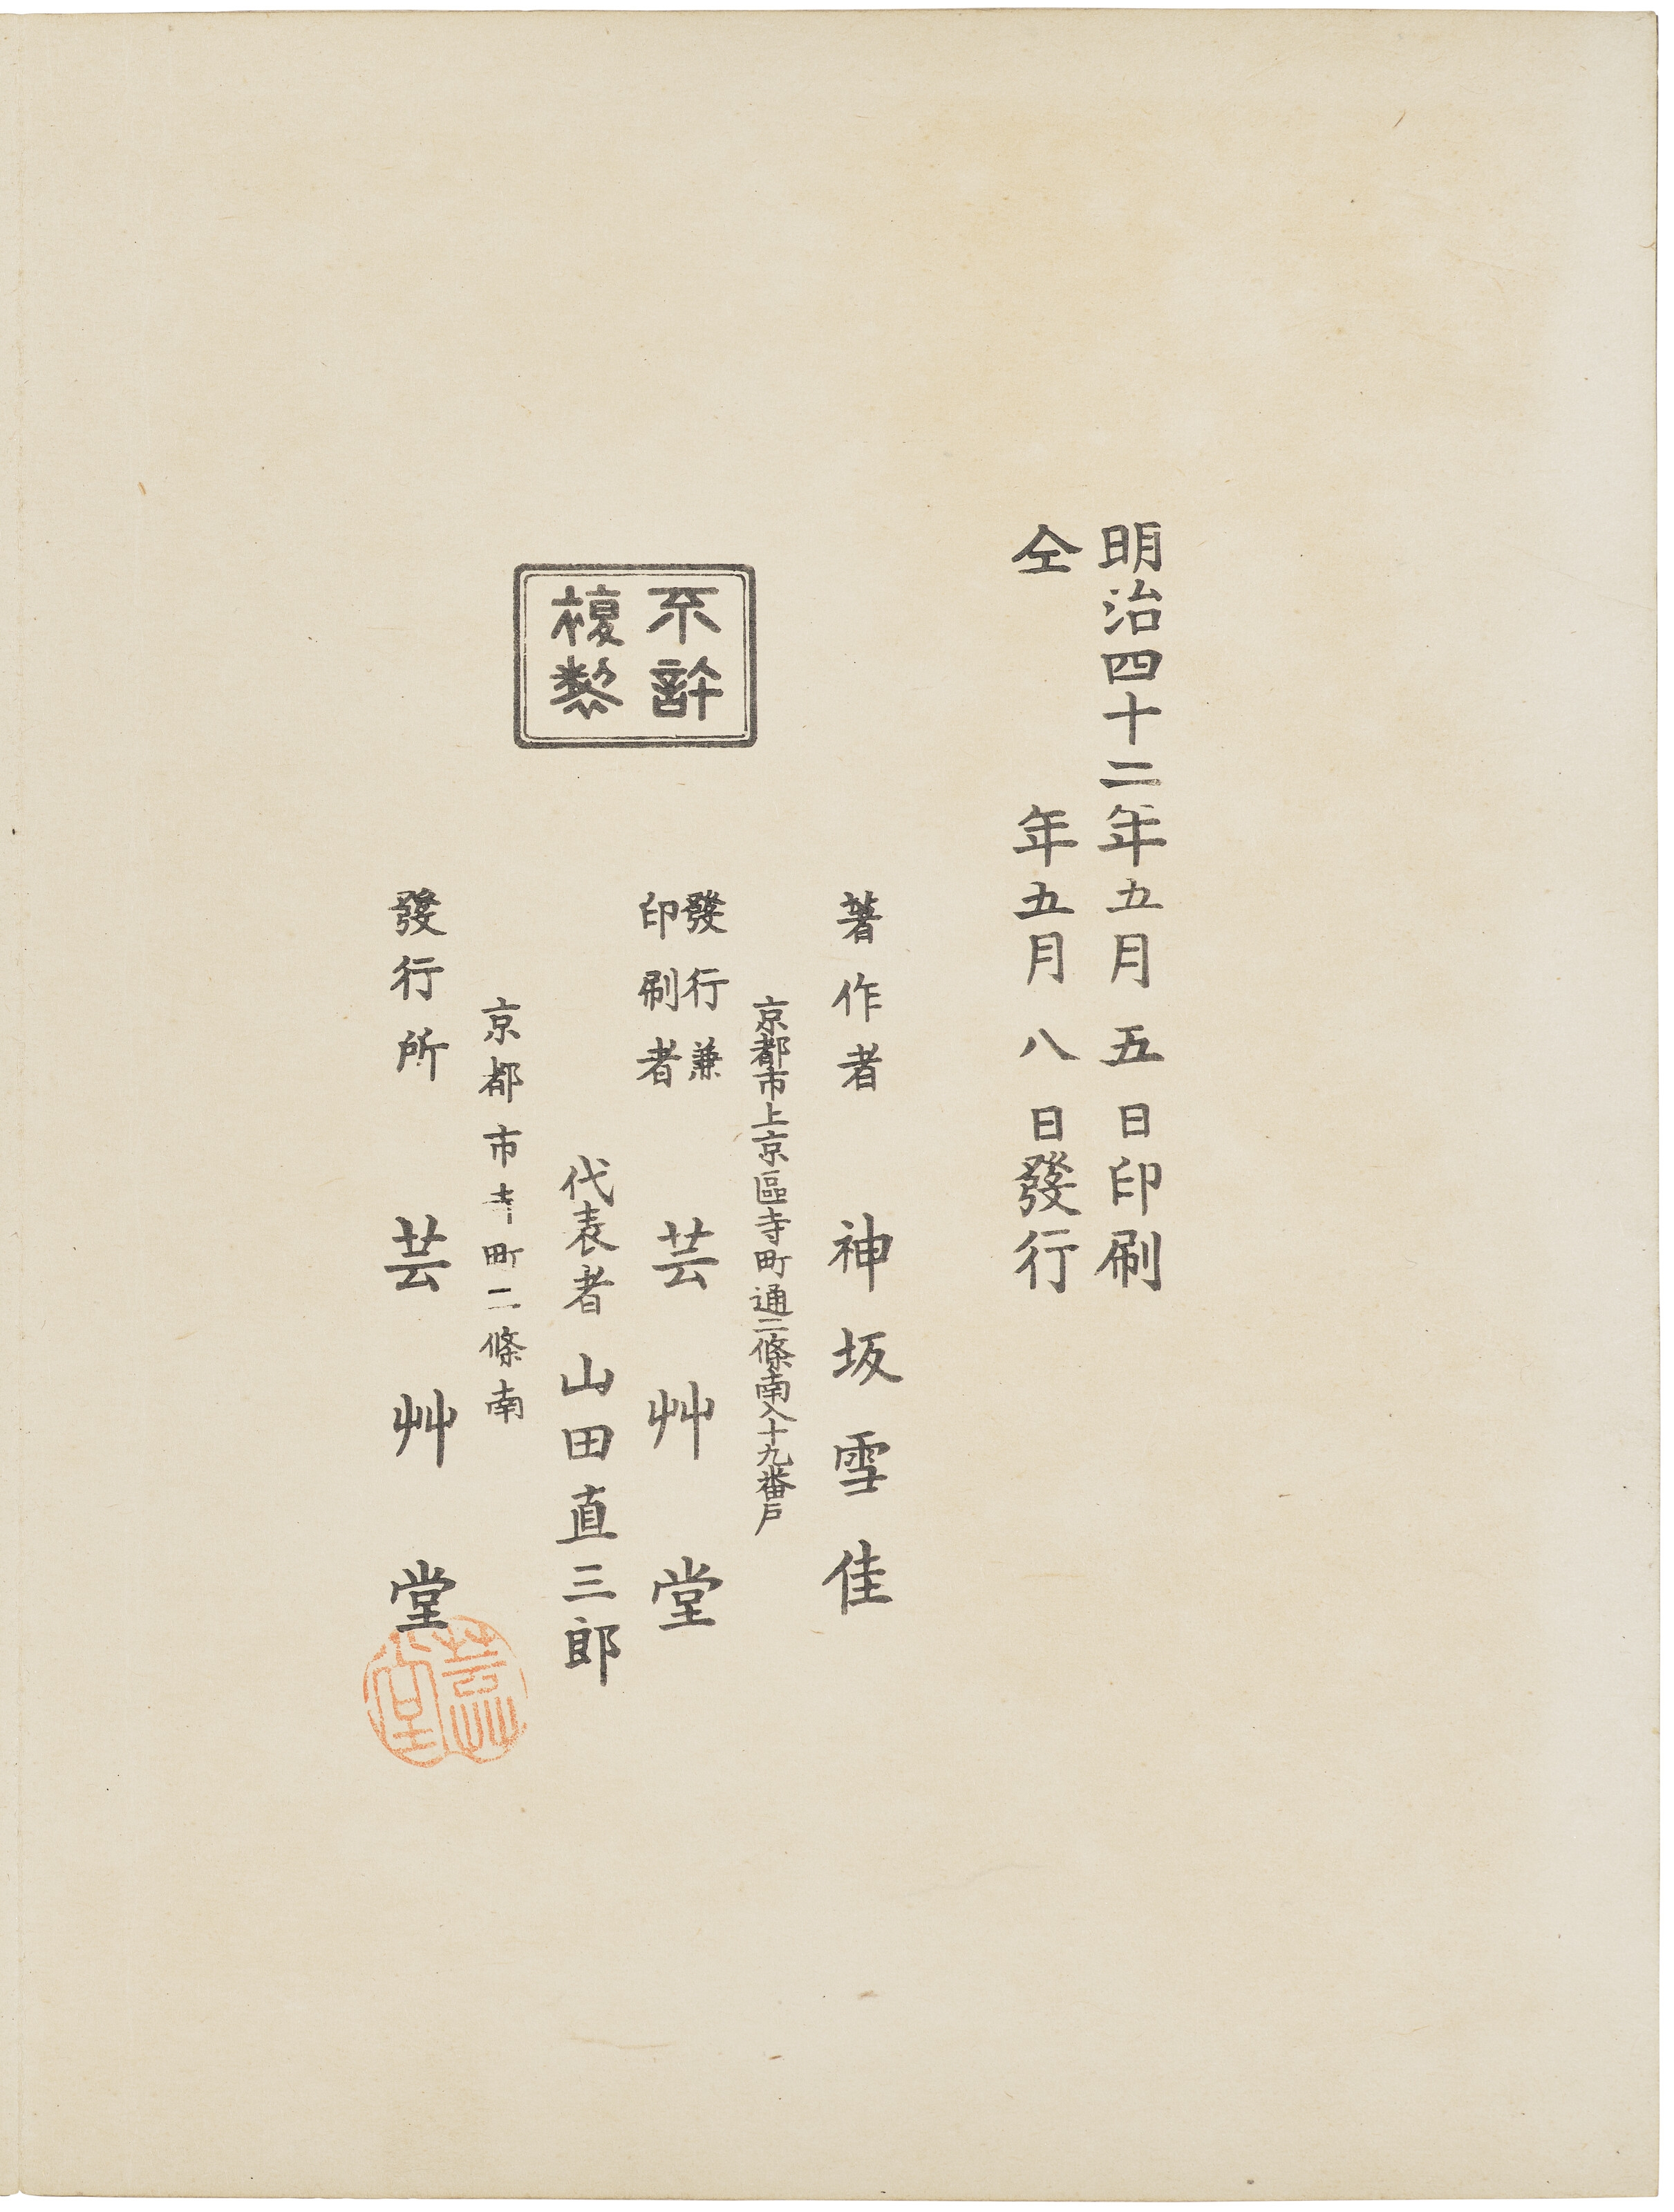 明治四十二年五月五日印刷
仝年五月八日發行
著作者 神坂雪佳
京都市上京區寺町通二條南入十九番戶
發行兼
印刷者
芸艸堂
代表者 山田直三郎
京都市寺町二條南
發行所 芸艸堂
不許
複製
芸艸
堂